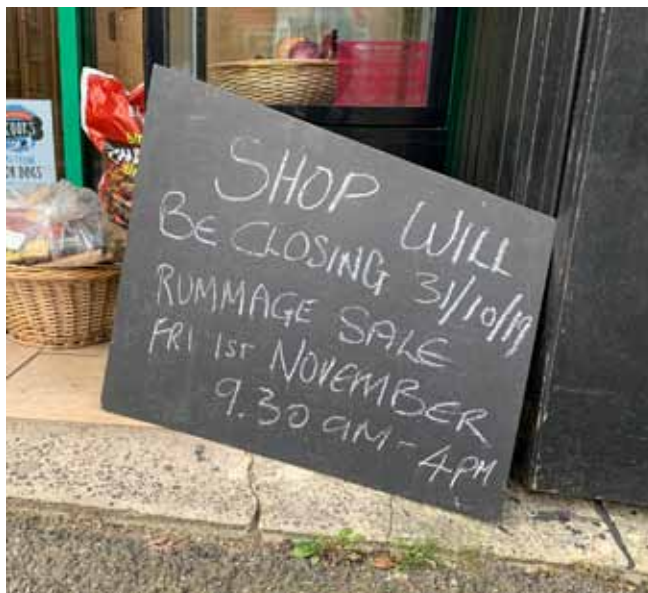 SHOP WILL
BE CLOSING 31/10/19
RUMMAGE SALE
FRI 1ST NOVEMBER
9.30 AM - 4PM
DOGS